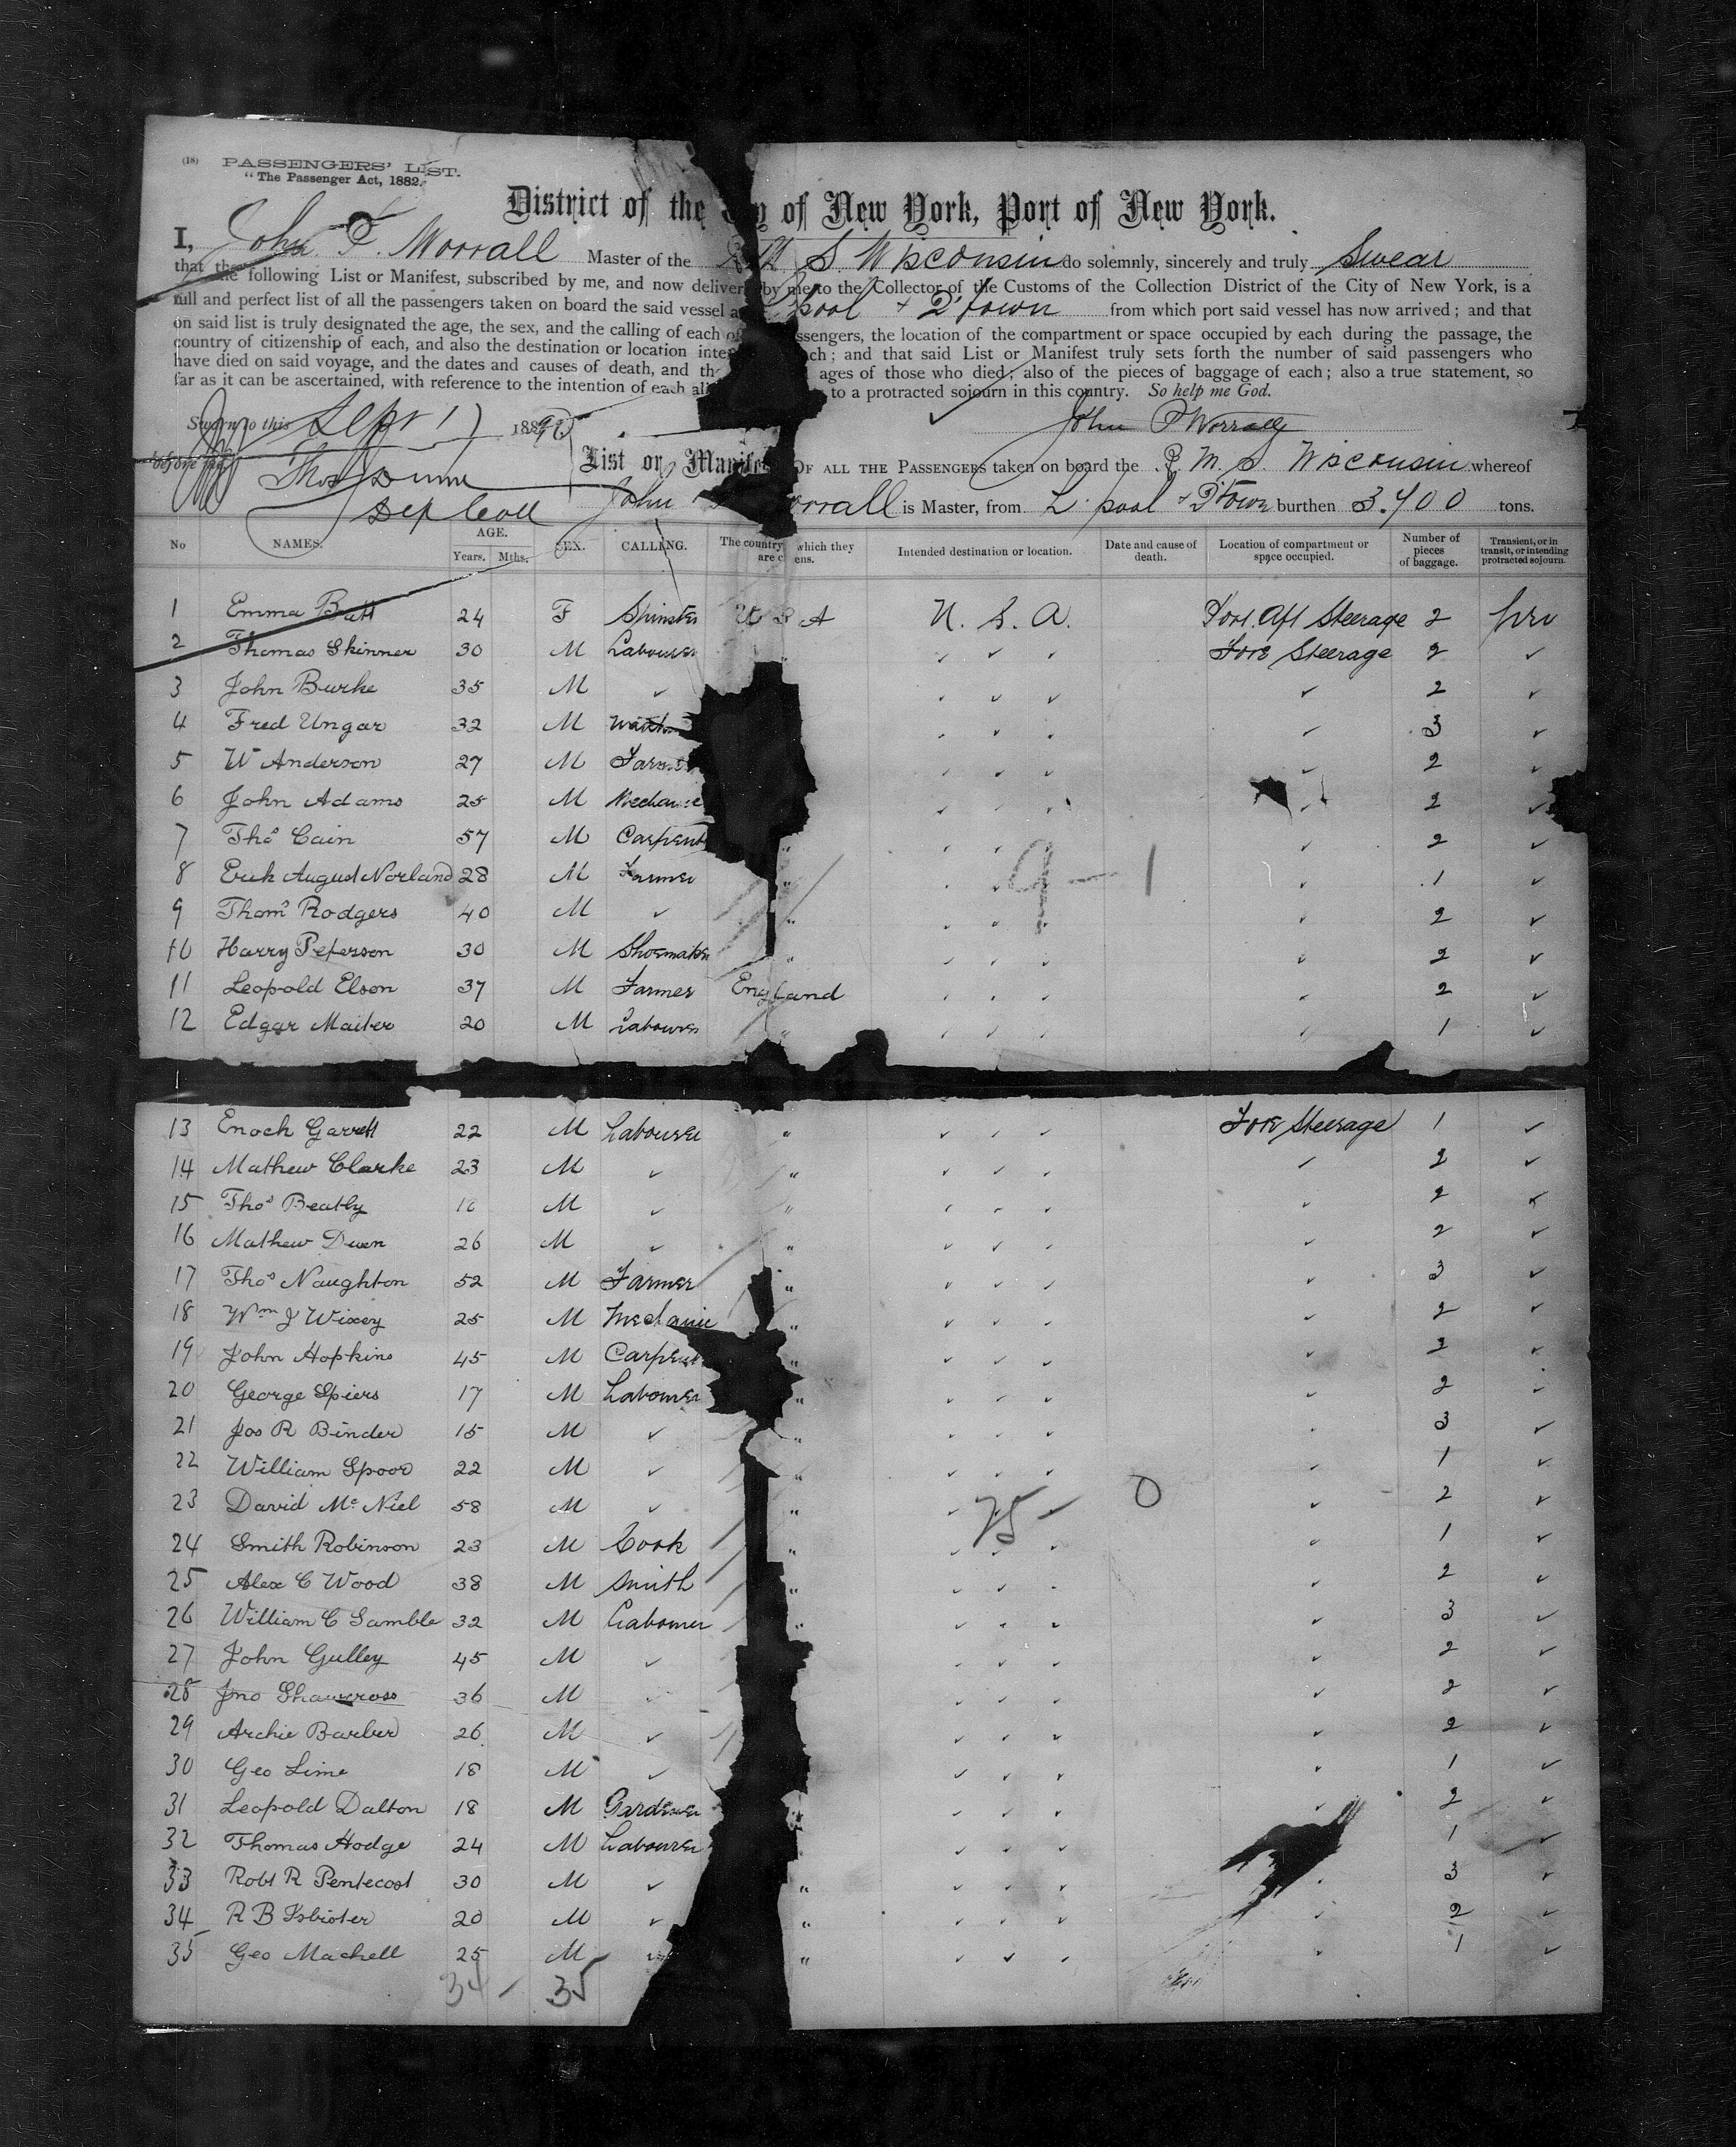 (18) PASSENGERS' LIST.
"The Passenger Act, 1882."
District of the City of New York, Port of New York.
I, John P. Worrall Master of the S Wisconsin do solemnly, sincerely and truly Swear
that the following List or Manifest, subscribed by me, and now delivered by me to the Collector of the Customs of the Collection District of the City of New York, is a
full and perfect list of all the passengers taken on board the said vessel at L'pool + Q'town from which port said vessel has now arrived; and that
on said list is truly designated the age, the sex, and the calling of each of passengers, the location of the compartment or space occupied by each during the passage, the
country of citizenship of each, and also the destination or location each; and that said List or Manifest truly sets forth the number of said passengers who
have died on said voyage, and the dates and causes of death, and the ages of those who died; also of the pieces of baggage of each; also a true statement, so
far as it can be ascertained, with reference to the intention of each to a protracted sojourn in this country. So help me God.
Sworn to this Sept 17 1890 John P Worrall
before me
Thos Dunn
Dep Coll
List or Manifest OF ALL THE PASSENGERS taken on board the R. M. S. Wisconsin whereof
John Worrall is Master, from L'pool + Q'town burthen 3.700 tons.
No NAMES. AGE. Years. Mths. SEX. CALLING. The country which they are c ens. Intended destination or location. Date and cause of death. Location of compartment or space occupied. Number of pieces of baggage. Transient, or in transit, or intending protracted sojourn.
1 Emma Batt 24 F Spinster U S A U. S. A. Aft Steerage 2
2 Thomas Skinner 30 M Labourer " ✓ ✓ ✓ Fore Steerage 2 ✓
3 John Burke 35 M ✓ ✓ ✓ ✓ ✓ 2 ✓
4 Fred Ungar 32 M ✓ ✓ ✓ ✓ 3 ✓
5 W Anderson 27 M Farmer ✓ ✓ ✓ ✓ 2 ✓
6 John Adams 25 M Mechanic ✓ ✓ ✓ ✓ 2 ✓
7 Thos Cain 57 M Carpent " ✓ ✓ ✓ ✓ 2 ✓
8 Erik August Norland 28 M Farmer " ✓ ✓ ✓ ✓ 1 ✓
9 - 1
9 Thoms Rodgers 40 M ✓ " ✓ ✓ ✓ ✓ 2 ✓
10 Harry Peterson 30 M Shoemaker " ✓ ✓ ✓ ✓ 2 ✓
11 Leopold Elson 37 M Farmer England ✓ ✓ ✓ ✓ 2 ✓
12 Edgar Maiter 20 M Labourer " ✓ ✓ ✓ ✓ 1 ✓
13 Enoch Garrett 22 M Labourer " ✓ ✓ ✓ Fore Steerage 1 ✓
14 Mathew Clarke 23 M ✓ " ✓ ✓ ✓ ✓ 2 ✓
15 Thos Beatty M ✓ " ✓ ✓ ✓ ✓ 2 ✓
16 Mathew Duen 26 M ✓ " ✓ ✓ ✓ ✓ 2 ✓
17 Thos Naughton 52 M Farmer " ✓ ✓ ✓ ✓ 3 ✓
18 Wm J Wixey 25 M Mechanic " ✓ ✓ ✓ ✓ 2 ✓
19 John Hopkins 45 M Carpent " ✓ ✓ ✓ ✓ 2 ✓
20 George Spiers 17 M Labourer " ✓ ✓ ✓ ✓ 2 ✓
21 Jos R Binder 15 M ✓ " ✓ ✓ ✓ ✓ 3 ✓
22 William Spoor 22 M ✓ " ✓ ✓ ✓ ✓ 1 ✓
23 David McNiel 58 M ✓ " ✓ ✓ ✓ ✓ 2 ✓
25 - 0
24 Smith Robinson 23 M Cook " ✓ ✓ ✓ ✓ 1 ✓
25 Alex C Wood 38 M Smith " ✓ ✓ ✓ ✓ 2 ✓
26 William C Gamble 32 M Labourer " ✓ ✓ ✓ ✓ 3 ✓
27 John Gulley 45 M ✓ ✓ ✓ ✓ ✓ 2 ✓
28 Jno Shawcross 36 M ✓ ✓ ✓ ✓ ✓ 2 ✓
29 Archie Barber 26 M ✓ ✓ ✓ ✓ ✓ 2 ✓
30 Geo Lime 18 M ✓ ✓ ✓ ✓ ✓ 1 ✓
31 Leopold Dalton 18 M Gardener ✓ ✓ ✓ ✓ 2 ✓
32 Thomas Hodge 24 M Labourer ✓ ✓ ✓ 1 ✓
33 Robt R Pentecost 30 M ✓ " ✓ ✓ ✓ ✓ 3 ✓
34 R B Isbister 20 M ✓ " ✓ ✓ ✓ ✓ 2 ✓
35 Geo Machell 25 M " ✓ ✓ ✓ ✓ 1 ✓
34 - 35